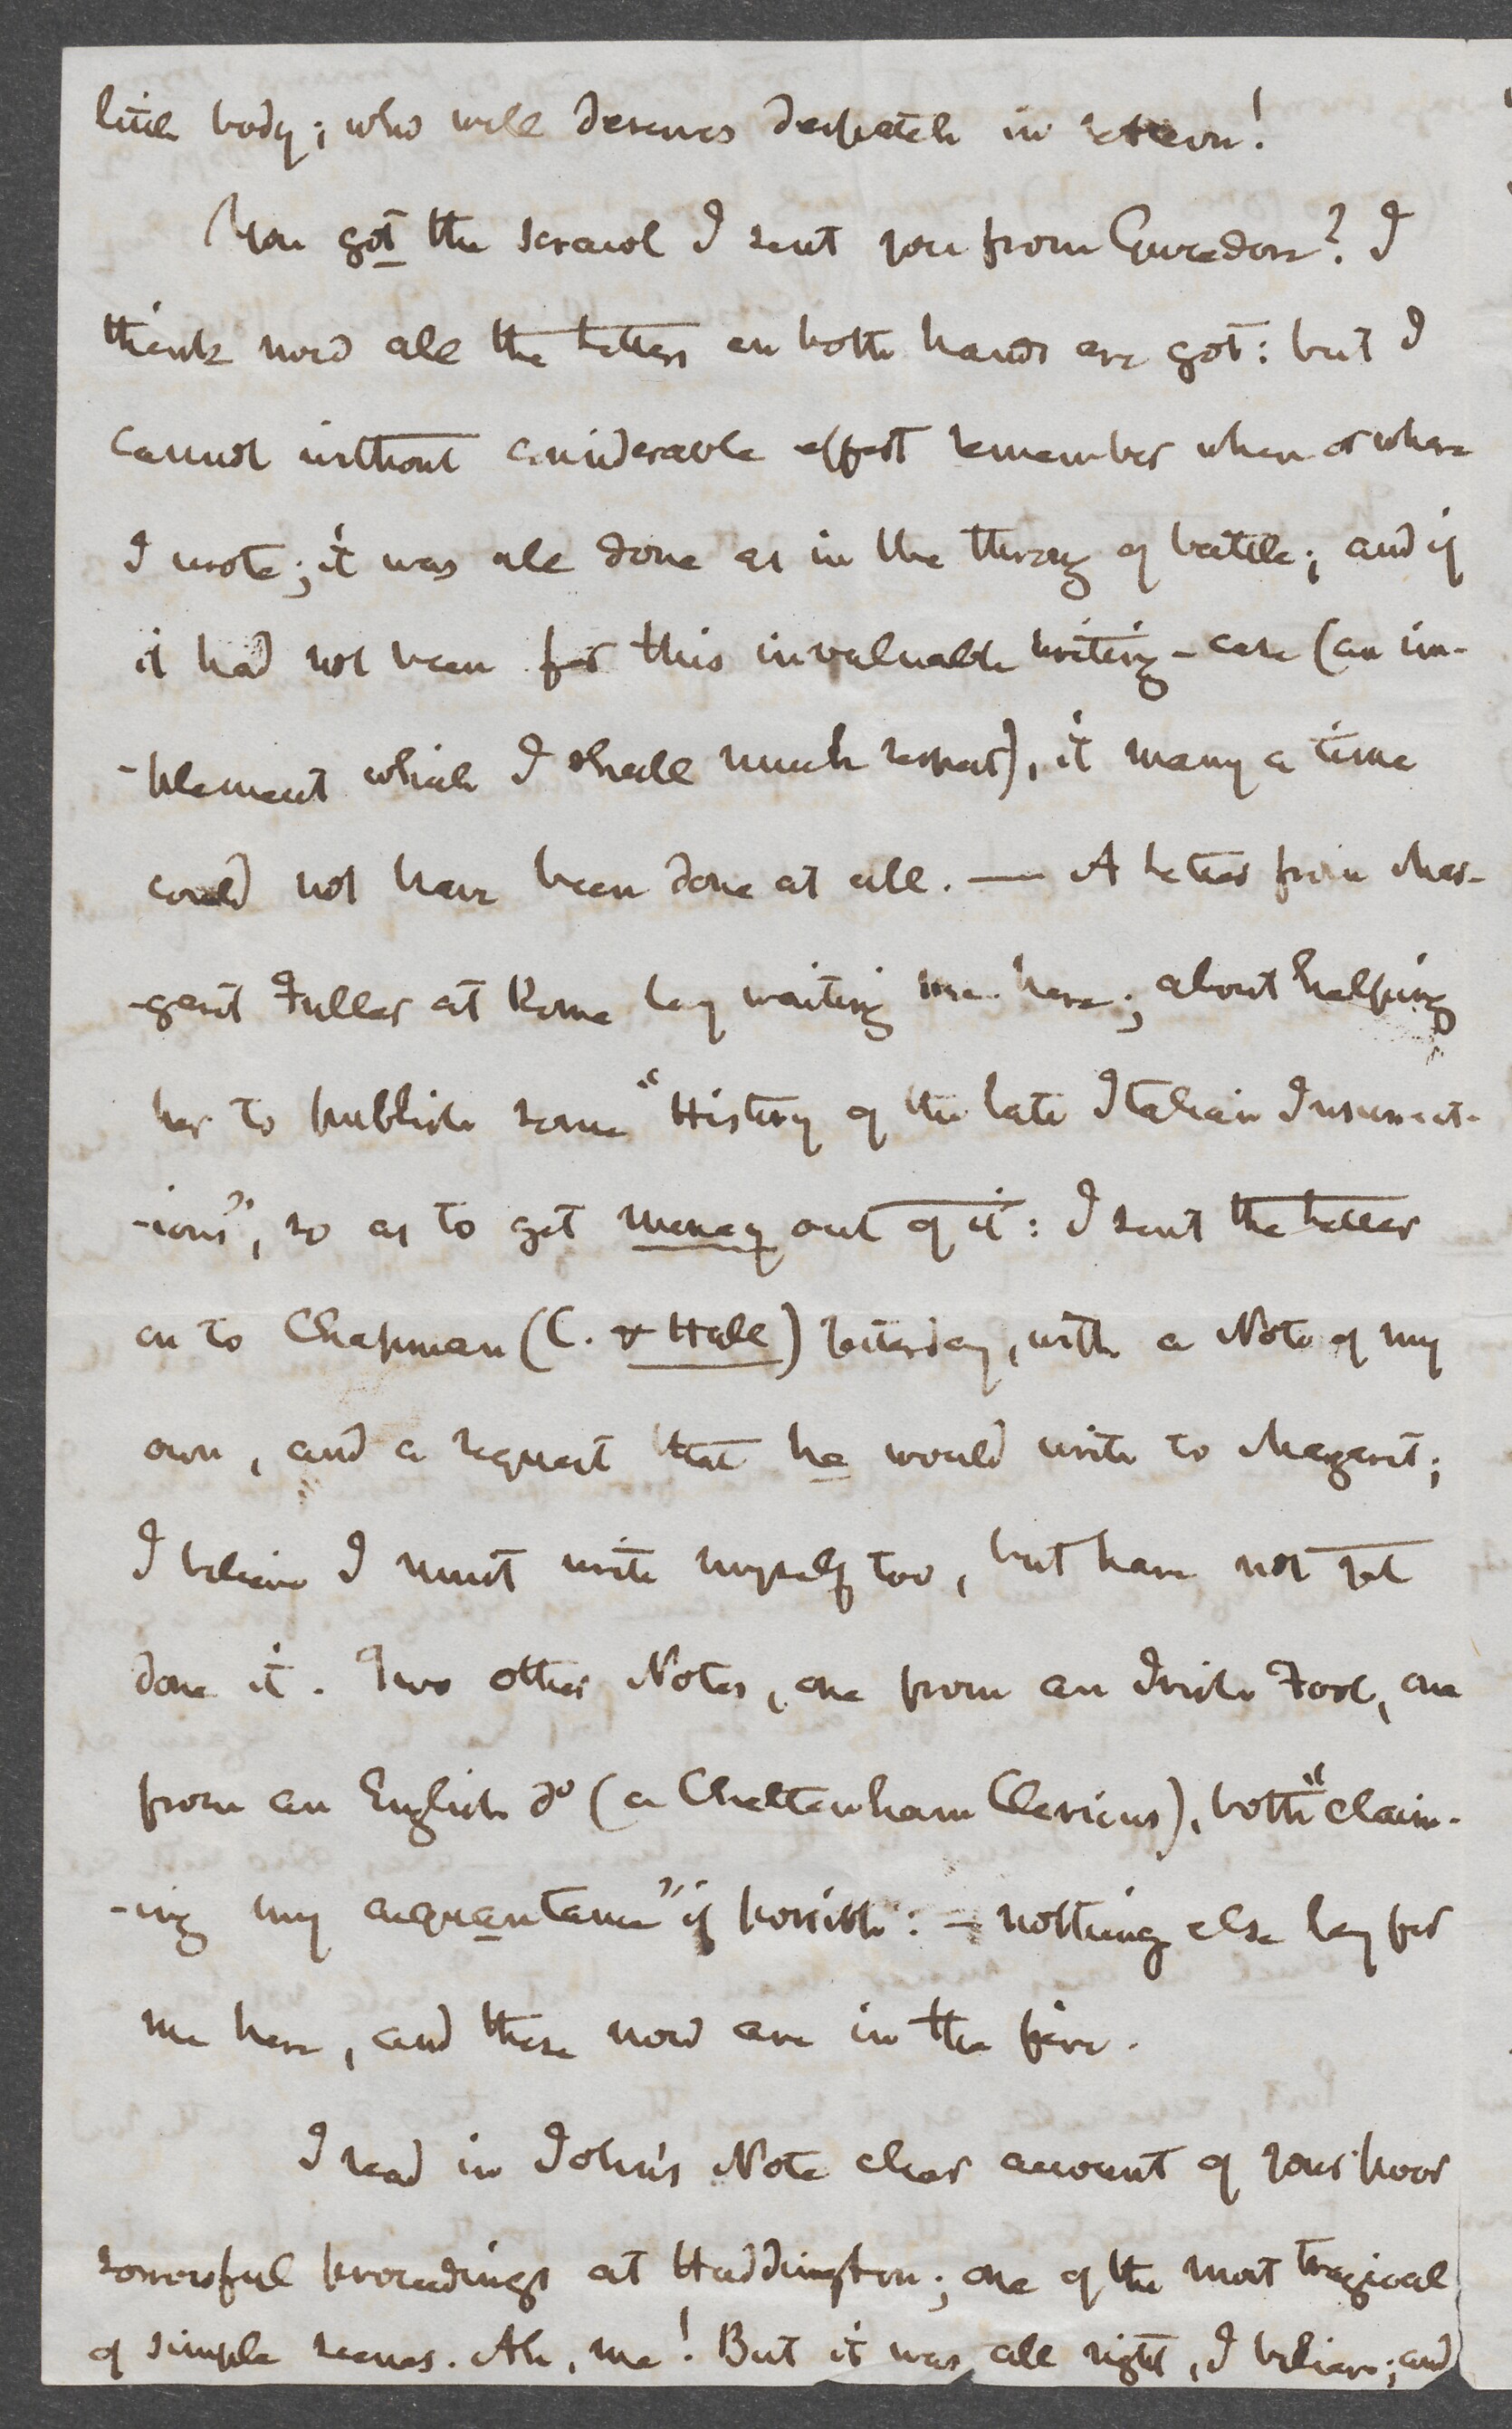 little body; who well deserves despatch in return!
You got the scrawl I sent you from Gweedore? I
think now all the letters on both hands are got: but I
cannot without considerable effort remember when or where
I wrote; it was all done as in the throng of battle; and if
it had not been for this invaluable writing-case (an im-
-plement which I shall much respect), it many a time
could not have been done at all. — A letter from Mar-
-garet Fuller at Rome lay waiting me here; about helping
her to publish some "History of the late Italian Insurrect-
-ions", so as to get money out of it: I sent the letter
on to Chapman (C. & Hall) yesterday, with a Note of my
own, and a request that he would write to Margaret;
I believe I must write myself too, but have not yet
done it. Two other Notes, one from an Irish Fool, one
from an English do (a Cheltenham Clericus), both "claim-
-ing my acquantance" if possible: — nothing else lay for
me here, and these now are in the fire.
I read in John's Note clear account of your poor
sorrowful proceedings at Haddington; one of the most tragical
of simple scenes. Ah, me! But it was all right, I believe; and